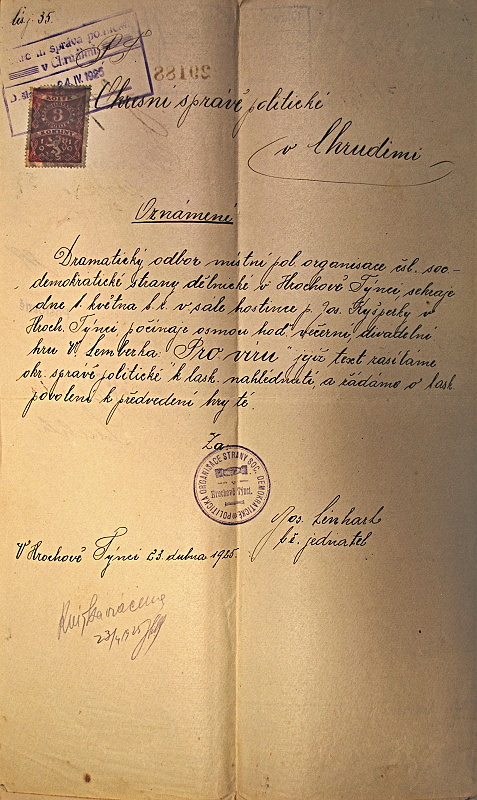 čís. 35.
správa politická
v Chrudimi
24. IV. 1925
20188
KOLEK
3
KORUNY
Okresní správě politické
v Chrudimi
Oznámení
Dramatický odbor místní pol. organisace čsl. soc-
demokratické strany dělnické v Hrochově Týnci, sehraje
dne 1. května t.r. v sále hostince p. Jos. Kyšperky v
Hroch. Týnci počínaje osmou hod. večerní, divadelní
hru W Lemberka: "Pro víru" jejíž text zasíláme
okr. správě politické k lask. nahlédnutí, a žádáme o lask.
povolení k předvedení hry té.
Za:
POLITICKÁ ORGANISACE STRANY SOC. DEMOKRATICKÉ
v
Hrochově Týnci.
Jos. Linhart
t.č. jednatel
V Hrochově Týnci 23. dubna 1925.
23/4 1925